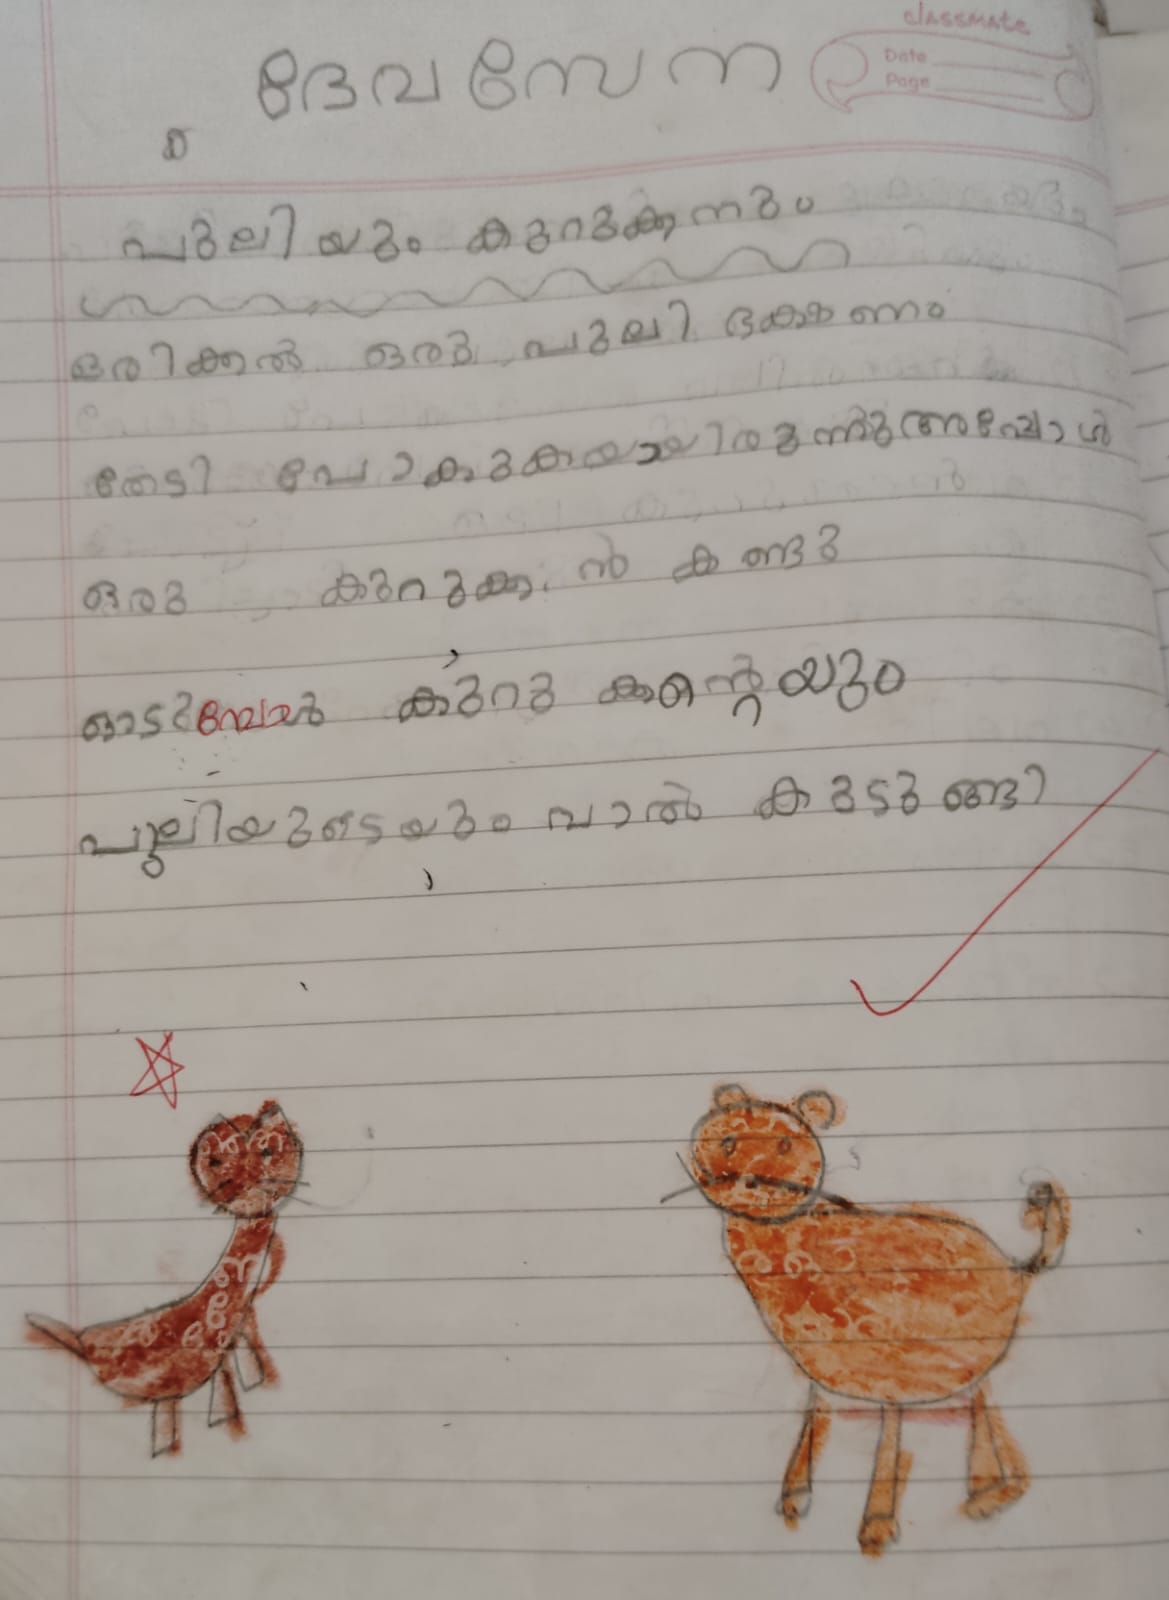 classmate
Date
Page
ദേവസേന
പുലിയും കുറുക്കനും
ഒരിക്കൽ ഒരു പുലി ഭക്ഷണം
തേടി പോകുകയായിരുന്നുഅപ്പോൾ
ഒരു കുറുക്കൻ കണ്ടു
ഓടുമ്പോൾ കുറുക്കന്റെയും
പുലിയുടെയും വാൽ കുടുങ്ങി